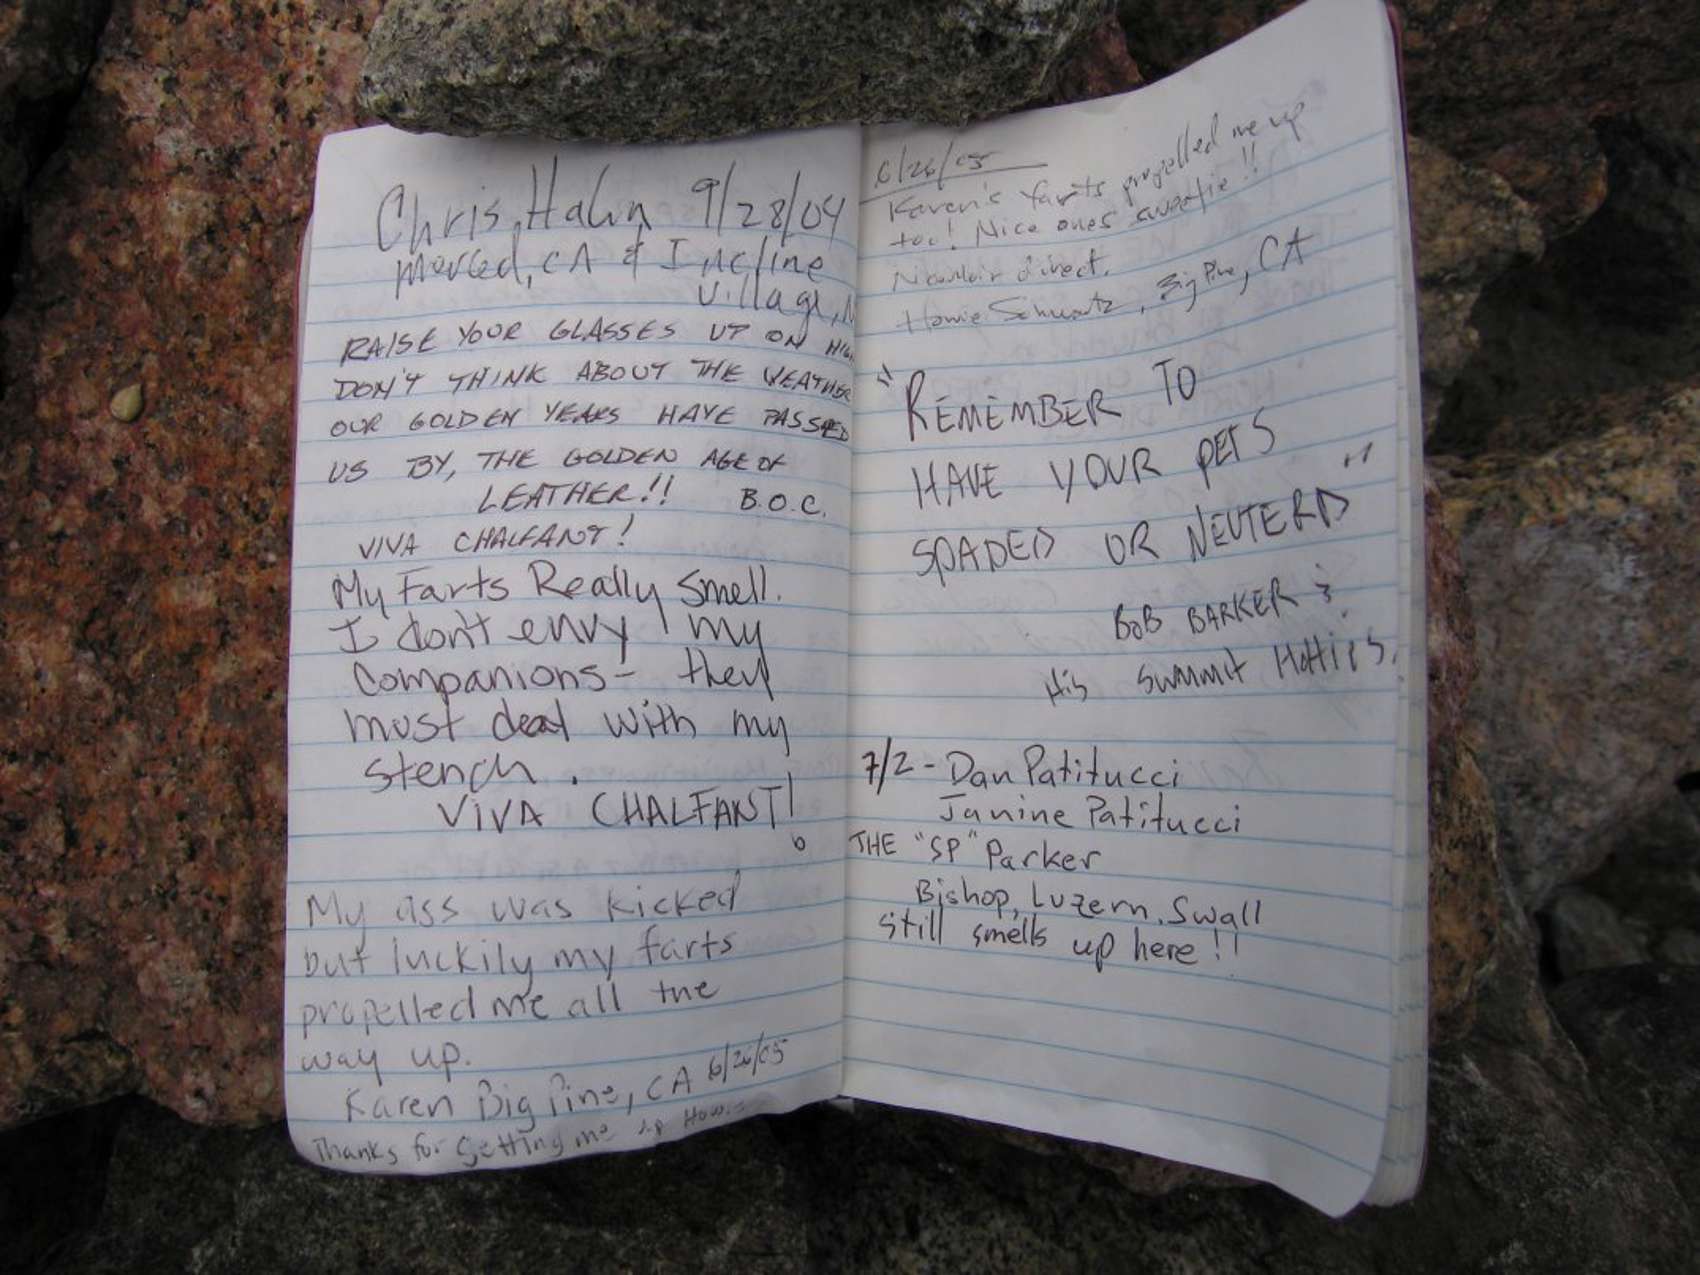 Chris Hahn 9/28/04
Merced, CA & Incline
Village, N
RAISE YOUR GLASSES UP ON HIG
DON'T THINK ABOUT THE WEATHER
OUR GOLDEN YEARS HAVE PASSED
US BY, THE GOLDEN AGE OF
LEATHER!! B.O.C.
VIVA CHALFANT!
My Farts Really Smell.
I don't envy my
Companions - they
must deal with my
stench.
VIVA CHALFANT!
My ass was kicked
but luckily my farts
propelled me all the
way up.
Karen Big Pine, CA 6/26/05
Thanks for getting me up Howie
6/26/05
Karen's farts propelled me up
too! Nice ones sweetie!!
direct.
Howie Schwartz, Big Pine, CA
"REMEMBER TO
HAVE YOUR PETS
SPADED OR NEUTERD"
BOB BARKER &
His SUMMIT HOTTIES.
7/2 - Dan Patitucci
Janine Patitucci
THE "SP" Parker
Bishop, Luzern, Swall
still smells up here!!